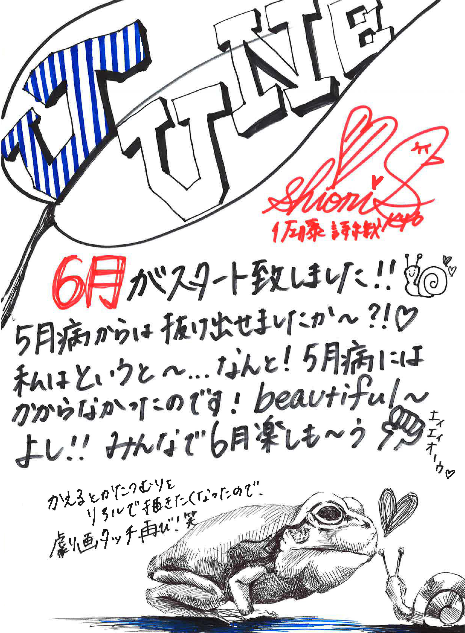 JUNE
Shiori S
佐藤詩歓
6月がスタート致しました!!
5月病からは抜け出せましたか〜?!♡
私はというと〜...なんと!5月病には
かからなかったのです!beautiful〜
よし!!みんなで6月楽しも〜う
エイエイオーウ♡
かえるとかたつむりを
リアルで描きたくなったので、
劇画タッチ再び!笑